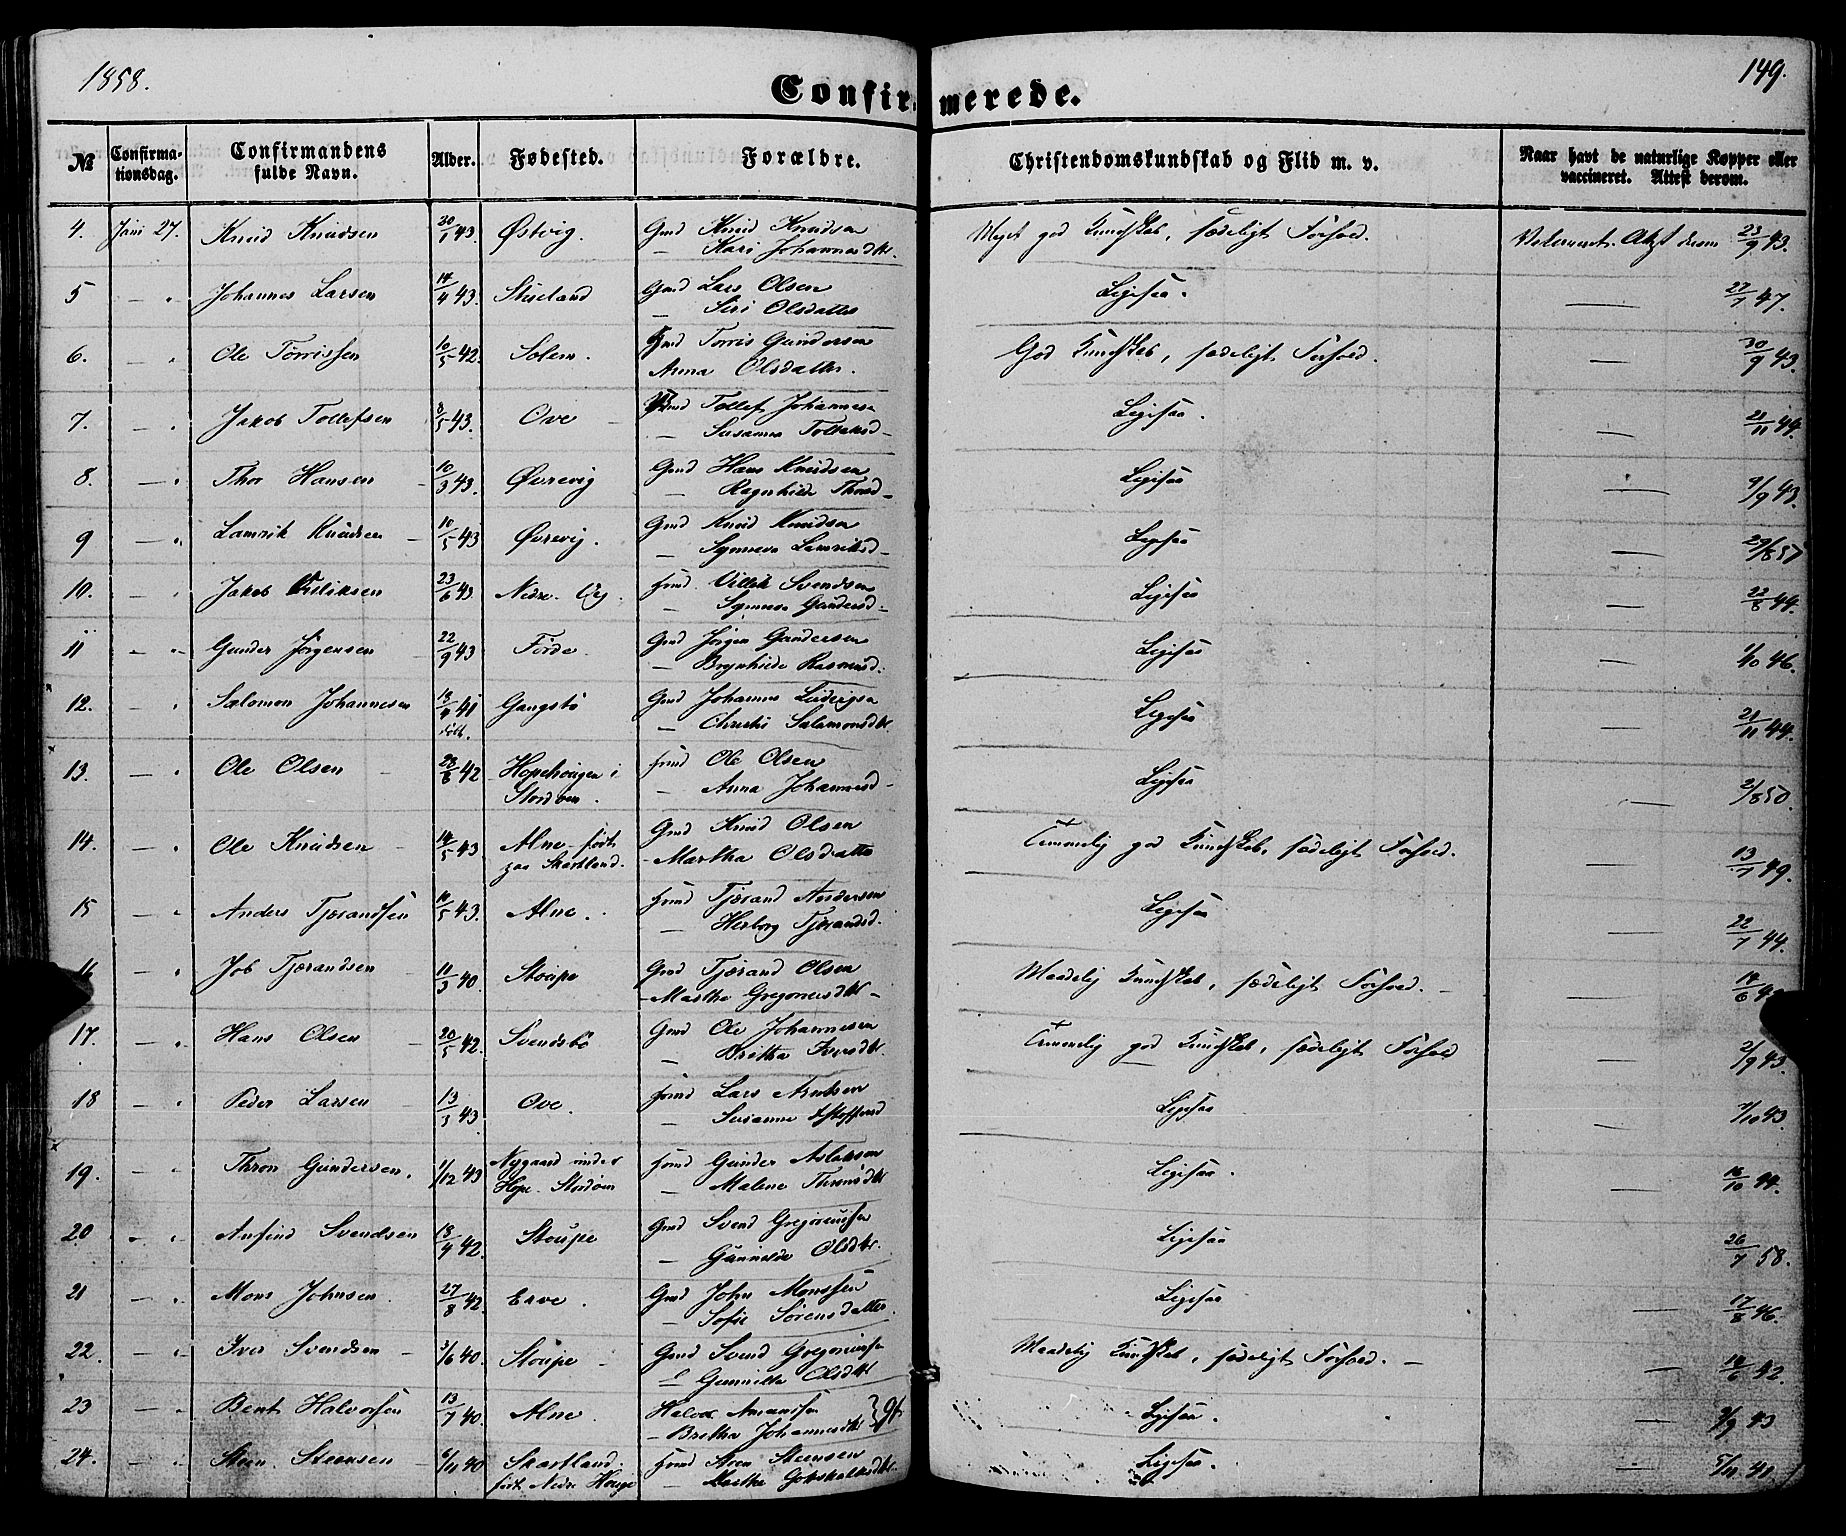 1858.
149.
Confirmerede.
№ Confirmationsdag. Confirmandens fulde Navn. Alder. Fødested. Forældre. Christendomskundskab og Flid m. v. Naar havt de naturlige Kopper eller vaccineret. Attest derom.
4. Juni 27. Knud Knudsen 30/1 43. Østvig. Gmd Knud Knudsen Meget god Kundskab, sædeligt Forhold. Vaccineret. Att derom 23/9 43.
— Kari Johannesdtr.
5 — " Johannes Larsen 14/4 43. Stueland Gmd Lars Olsen Ligesaa. — 27/7 47.
— Siri Olsdatter
6. — " Ole Torrissen 10/5 42. Solem. Gmd Torris Gundersen God Kundskab, sædeligt Forhold. — 30/9 43.
Anna Olsdatter.
7. — " Jakob Tollefsen 8/5 43. Ove — Gmd Tollef Johannesen Ligesaa. — 21/11 44.
— Susanna Tollefsd —
8. — " Thor Hansen 10/3 43. Øvrevig Gmd Hans Knudsen Ligesaa — 9/9 43.
— Ragnhilde Thorsd —
9 — " Lamrik Knudsen 10/5 43 Øvrevig. Gmd Knud Knudsen Ligesaa — 29/8 57
— Synneva Lamriksd —
10. — " Jakob 23/6 43. Nedre Hmd Svendsen Ligesaa — 22/8 44.
— Synneva Gundersd —
11 — " Gunder Jørgensen 22/9 43 Førde. Gmd Jørgen Gundersen Ligesaa — 1/10 46.
— Brynhilde Rasmusd.
12. — " Salomon Johannesen 41 Gangstø Gmd Johannes Ludvigsen Ligesaa — 21/11 44.
født. — Christi Salamonsdtr
13. — " Ole Olsen 28/8 42 Hopehougen i Hmd Ole Olsen Ligesaa — 2/8 50.
Stordøen. — Anna Johannesd —
14. — " Ole Knudsen 14/5 43 Alne født Gmd Knud Olsen Temmelig god Kundskab, sædeligt Forhold. — 13/7 49.
paa Skartland. — Martha Olsdatter
15 — " Anders Tjerandsen 43. Alne. Hmd Tjerand Andersen Ligesaa — 22/7 44.
— Herborg Tjerandsd.
16 — " Job Tjerandsen 11/3 40. Stoupe Gmd Tjerand Olsen Maadelig Kundskab, sædeligt Forhold. — 14/6
— Martha Gregoriusdtr —
17. — " Hans Olsen 20/5 42. Svendsbø Gmd Ole Johannesen Temmelig god Kundskab, sædeligt Forhold — 2/9 43.
— Britha Iversdtr.
18 — " Peder Larsen 13/3 43 Ove. Hmd Lars Ligesaa — 43.
— Susanna
19. — " Thron Gundersen. 1/12 43 Nygaard under Hmd Gunder Aslaksen Ligesaa. — 16/10 44.
Hope. Stordøen — Malene Thronsdtr
20 — " Anfind Svendsen 18/4 42. Stoupe Gmd Svend Gregoriussen Ligesaa — 26/7 58.
— Gunnilde Olsdtr.
21 — " Mons Johnsen. 27/8 42. Erve. Gmd John Monssen Ligesaa — 17/8 46.
— Sofie Sørensdatter.
22. — " Iver Svendsen — 3/6 40. Stoupe — Gmd Svend Gregoriussen Maadelig Kundskab, sædeligt Forhold. — 14/6 42.
— Gunnilda Olsdtr
23 — " Bent Halvorsen 13/7 40. Alne. Halvor Ligesaa. — 9/9 43
— Britha Johannesdtr
24. — " Steen Steensen — 6/11 40 Skartland. Hmd Steen Steensen Ligesaa. — 5/11 41
født Nedre Houge — Martha Gotskalksdtr.